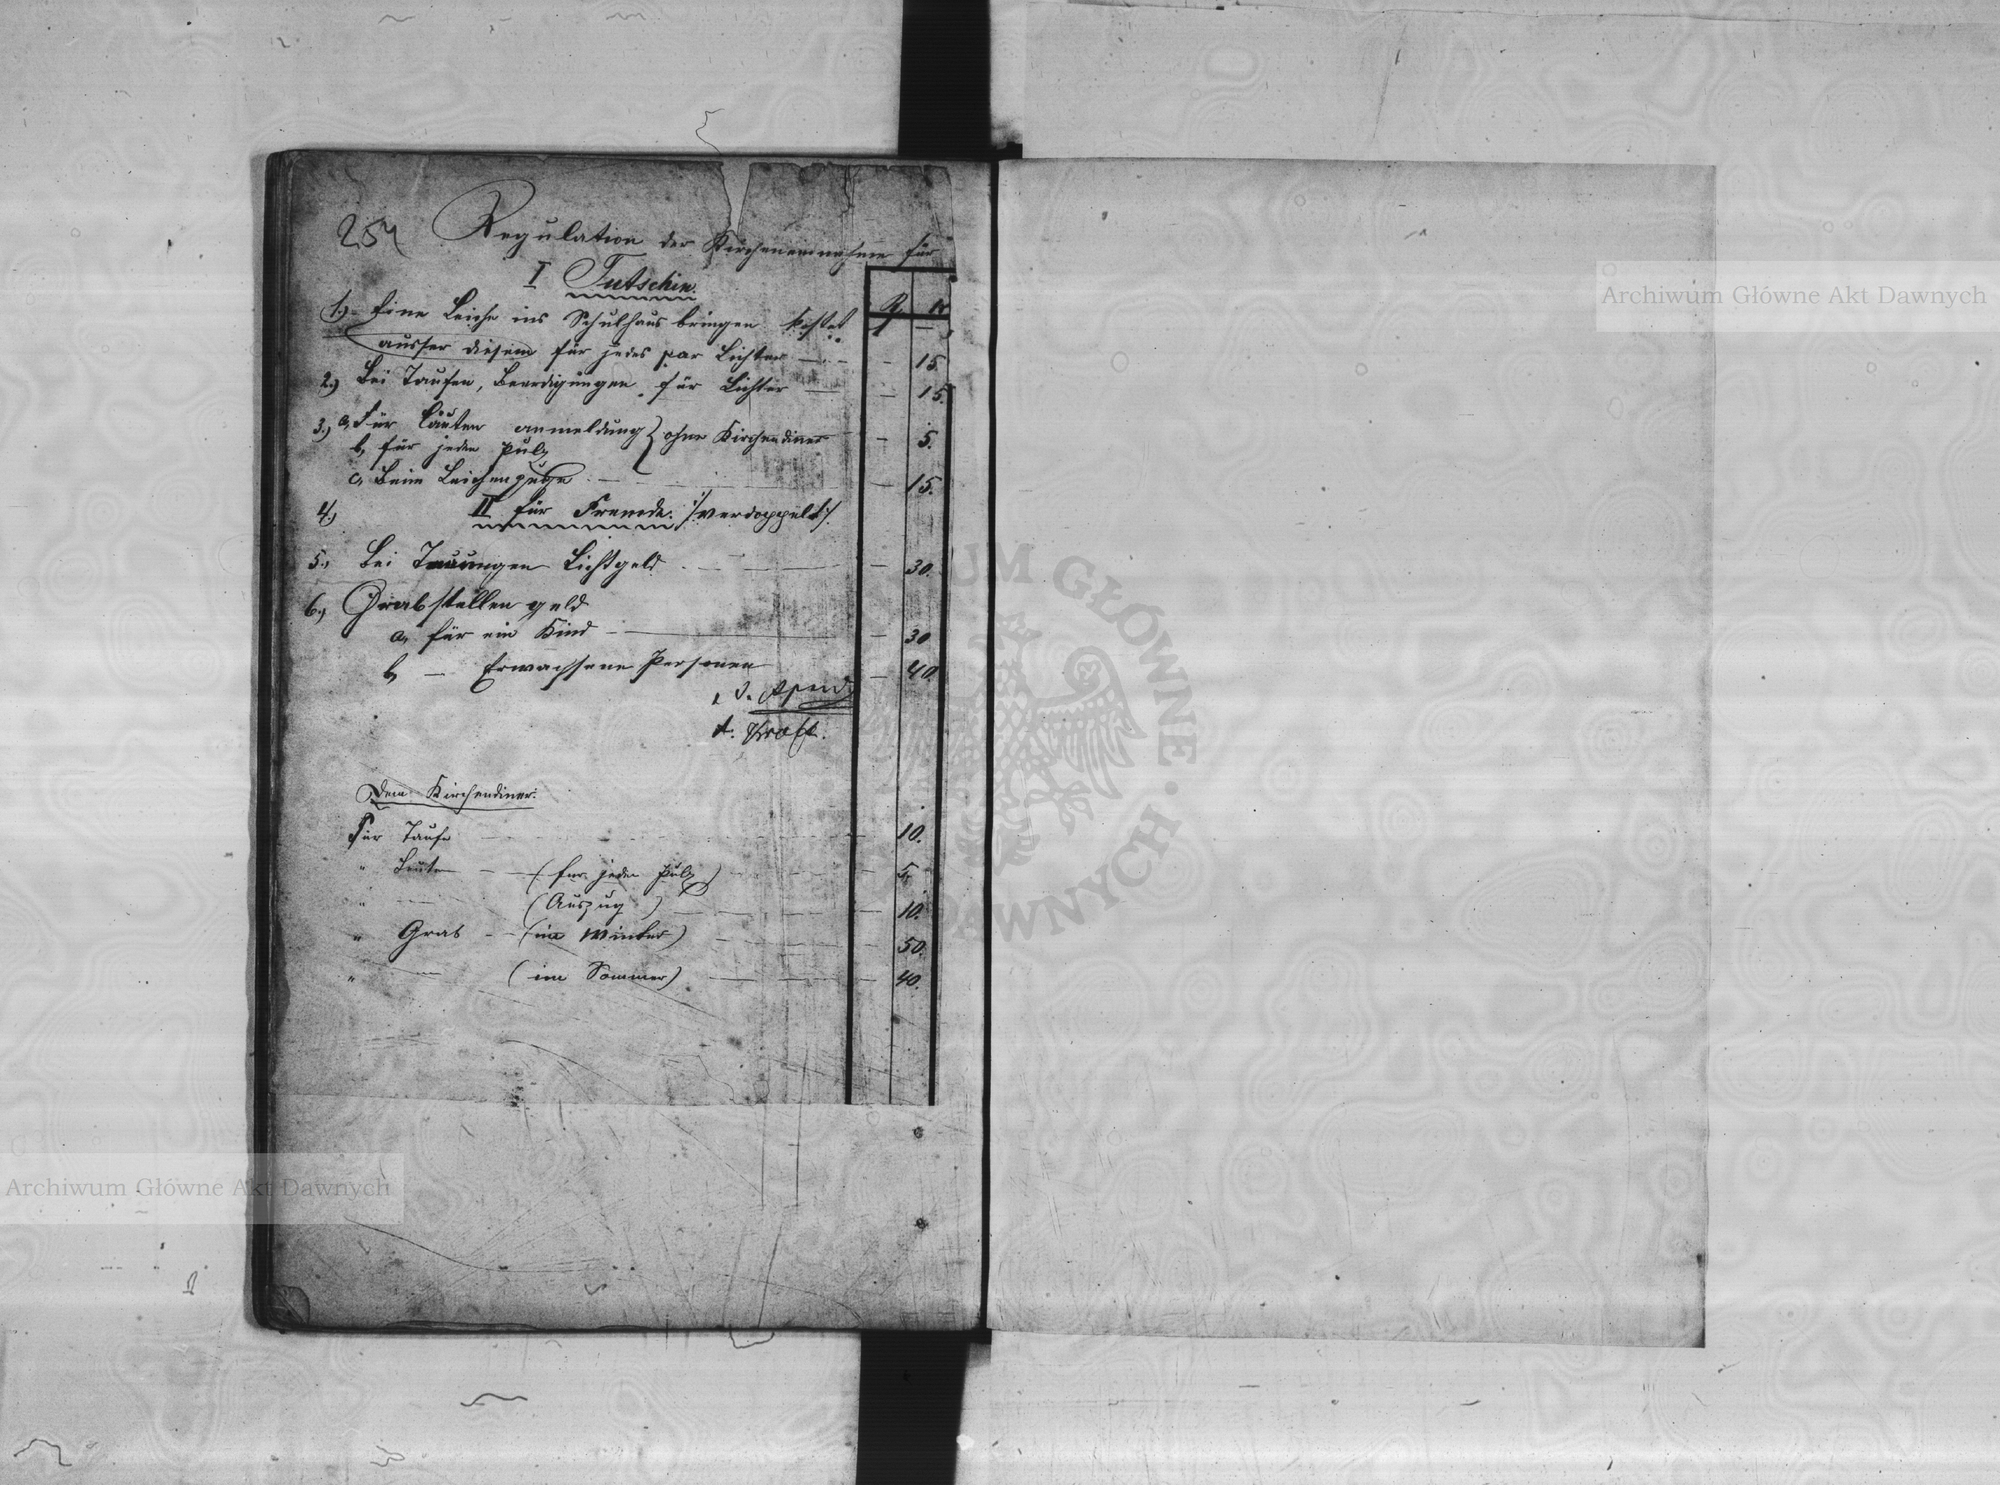 254
Regulation der Kircheneinnahme für
I Tutschin.
R. K
1.) Eine Leiche ins Schulhaus bringen kostet 1 —
ausser diesem für jedes par Lichter — — 15.
2.) Bei Taufen, Beerdigungen für Lichter — — 15.
3.) a, Für Läuten anmeldung } ohne Kirchendiner — 5.
b, für jeden Puls
c, Beim Leichenzuge — — 15.
4.) II für Fremde. /: verdoppelt :/
5., Bei Trauungen Lichtgeld — — 30.
6.) Grabstellen geld
a, für ein Kind — — 30
b, — Erwachsene Personen — 40.
A. Kraft.
Dem Kirchendiner:
Für Taufe — — 10.
" Leuten — — (für jeden Puls) — — 5.
" — (Auszug) — — 10.
" Grab — — (im Winter) — — 50.
" — (im Sommer) — — 40.
Archiwum Główne Akt Dawnych
Archiwum Główne Akt Dawnych
UM GŁÓWNE · DAWNYCH